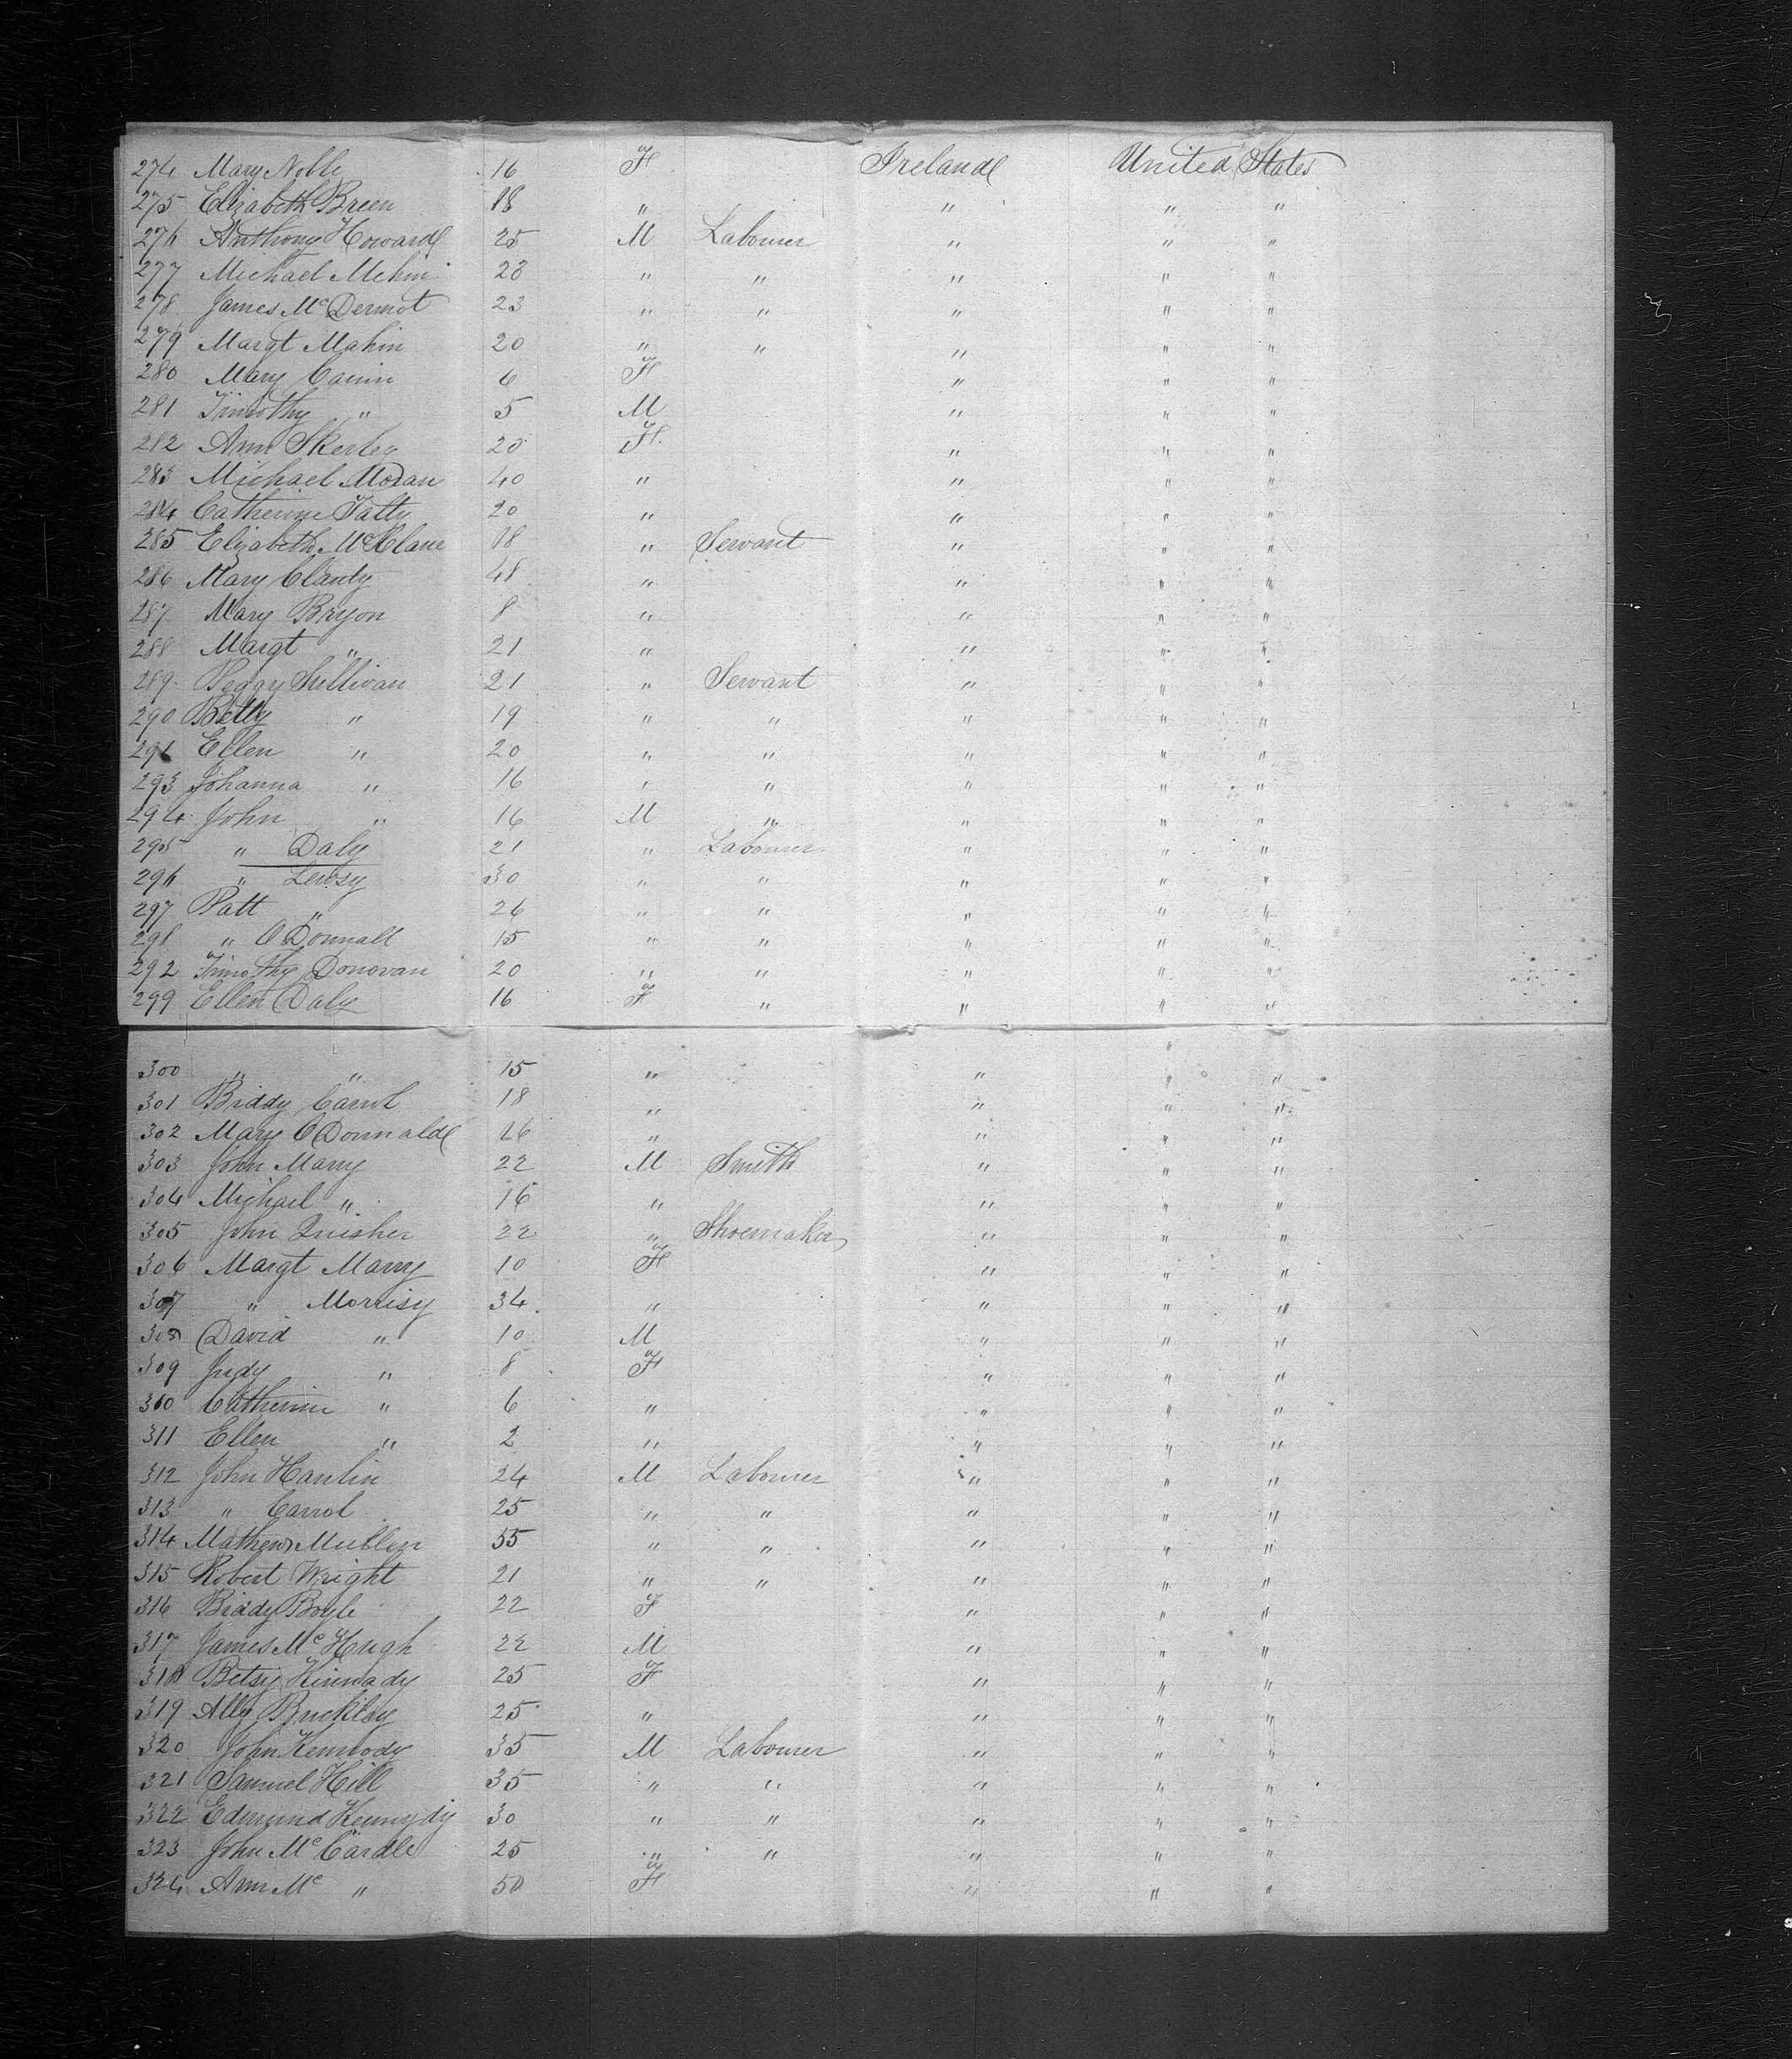 274 Mary Noble 16 F Ireland United States
275 Elizabeth Breen 18 " " " "
276 Anthony Howard 25 M Labourer " " "
277 Michael Mehin 23 " " " " "
278 James McDermot 23 " " " " "
279 Margt Mahin 20 " " " " "
280 Mary Cannin 6 F " " "
281 Timothy " 5 M " " "
282 Ann Skerley 20 F " " "
283 Michael Moran 40 " " " "
284 Catherine Tatty 20 " " " "
285 Elizabeth 18 " Servant " " "
286 Mary Clanty 48 " " " "
287 Mary Bryon 8 " " " "
288 Margt " 21 " " " "
289 Peggy Sullivan 21 " Servant " " "
290 Betty " 19 " " " " "
291 Ellen " 20 " " " " "
293 Johanna " 16 " " " " "
294 John " 16 M " " " "
295 " Daly 21 " Labourer " " "
296 " Lewsy 30 " " " " "
297 Patt " 26 " " " " "
298 " O Donnall 15 " " " " "
292 Timothy Donovan 20 " " " " "
299 Ellen Daly 16 F " " " "
300 " " 15 " " " "
301 Biddy Carrol 18 " " " "
302 Mary O Donnald 16 " " " "
303 John Marry 22 M Smith " " "
304 Michael " 16 " " " "
305 John 22 " Shoemaker " " "
306 Margt Marry 10 F " " "
307 " Morrisy 34 " " " "
308 David " 10 M " " "
309 Judy " 8 F " " "
310 Catherine " 6 " " " "
311 Ellen " 2 " " " "
312 John Hanlin 24 M Labourer " " "
313 " Carrol 25 " " " " "
314 Mathew Mullen 55 " " " " "
315 Robert Wright 21 " " " " "
316 Biddy Boyle 22 F " " "
317 James McHugh 22 M " " "
318 Betsy Kinnady 25 F " " "
319 Ally Buckley 25 " " " "
320 John 35 M Labourer " " "
321 Samuel Hill 35 " " " " "
322 Edmund Kennydy 30 " " " " "
323 John McCardle 25 " " " " "
324 Ann Mc " 50 F " " "